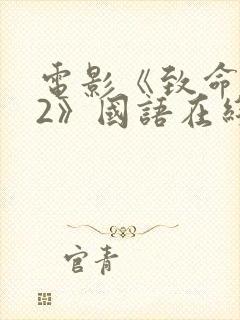 電影《致命
2》國語在線
官青